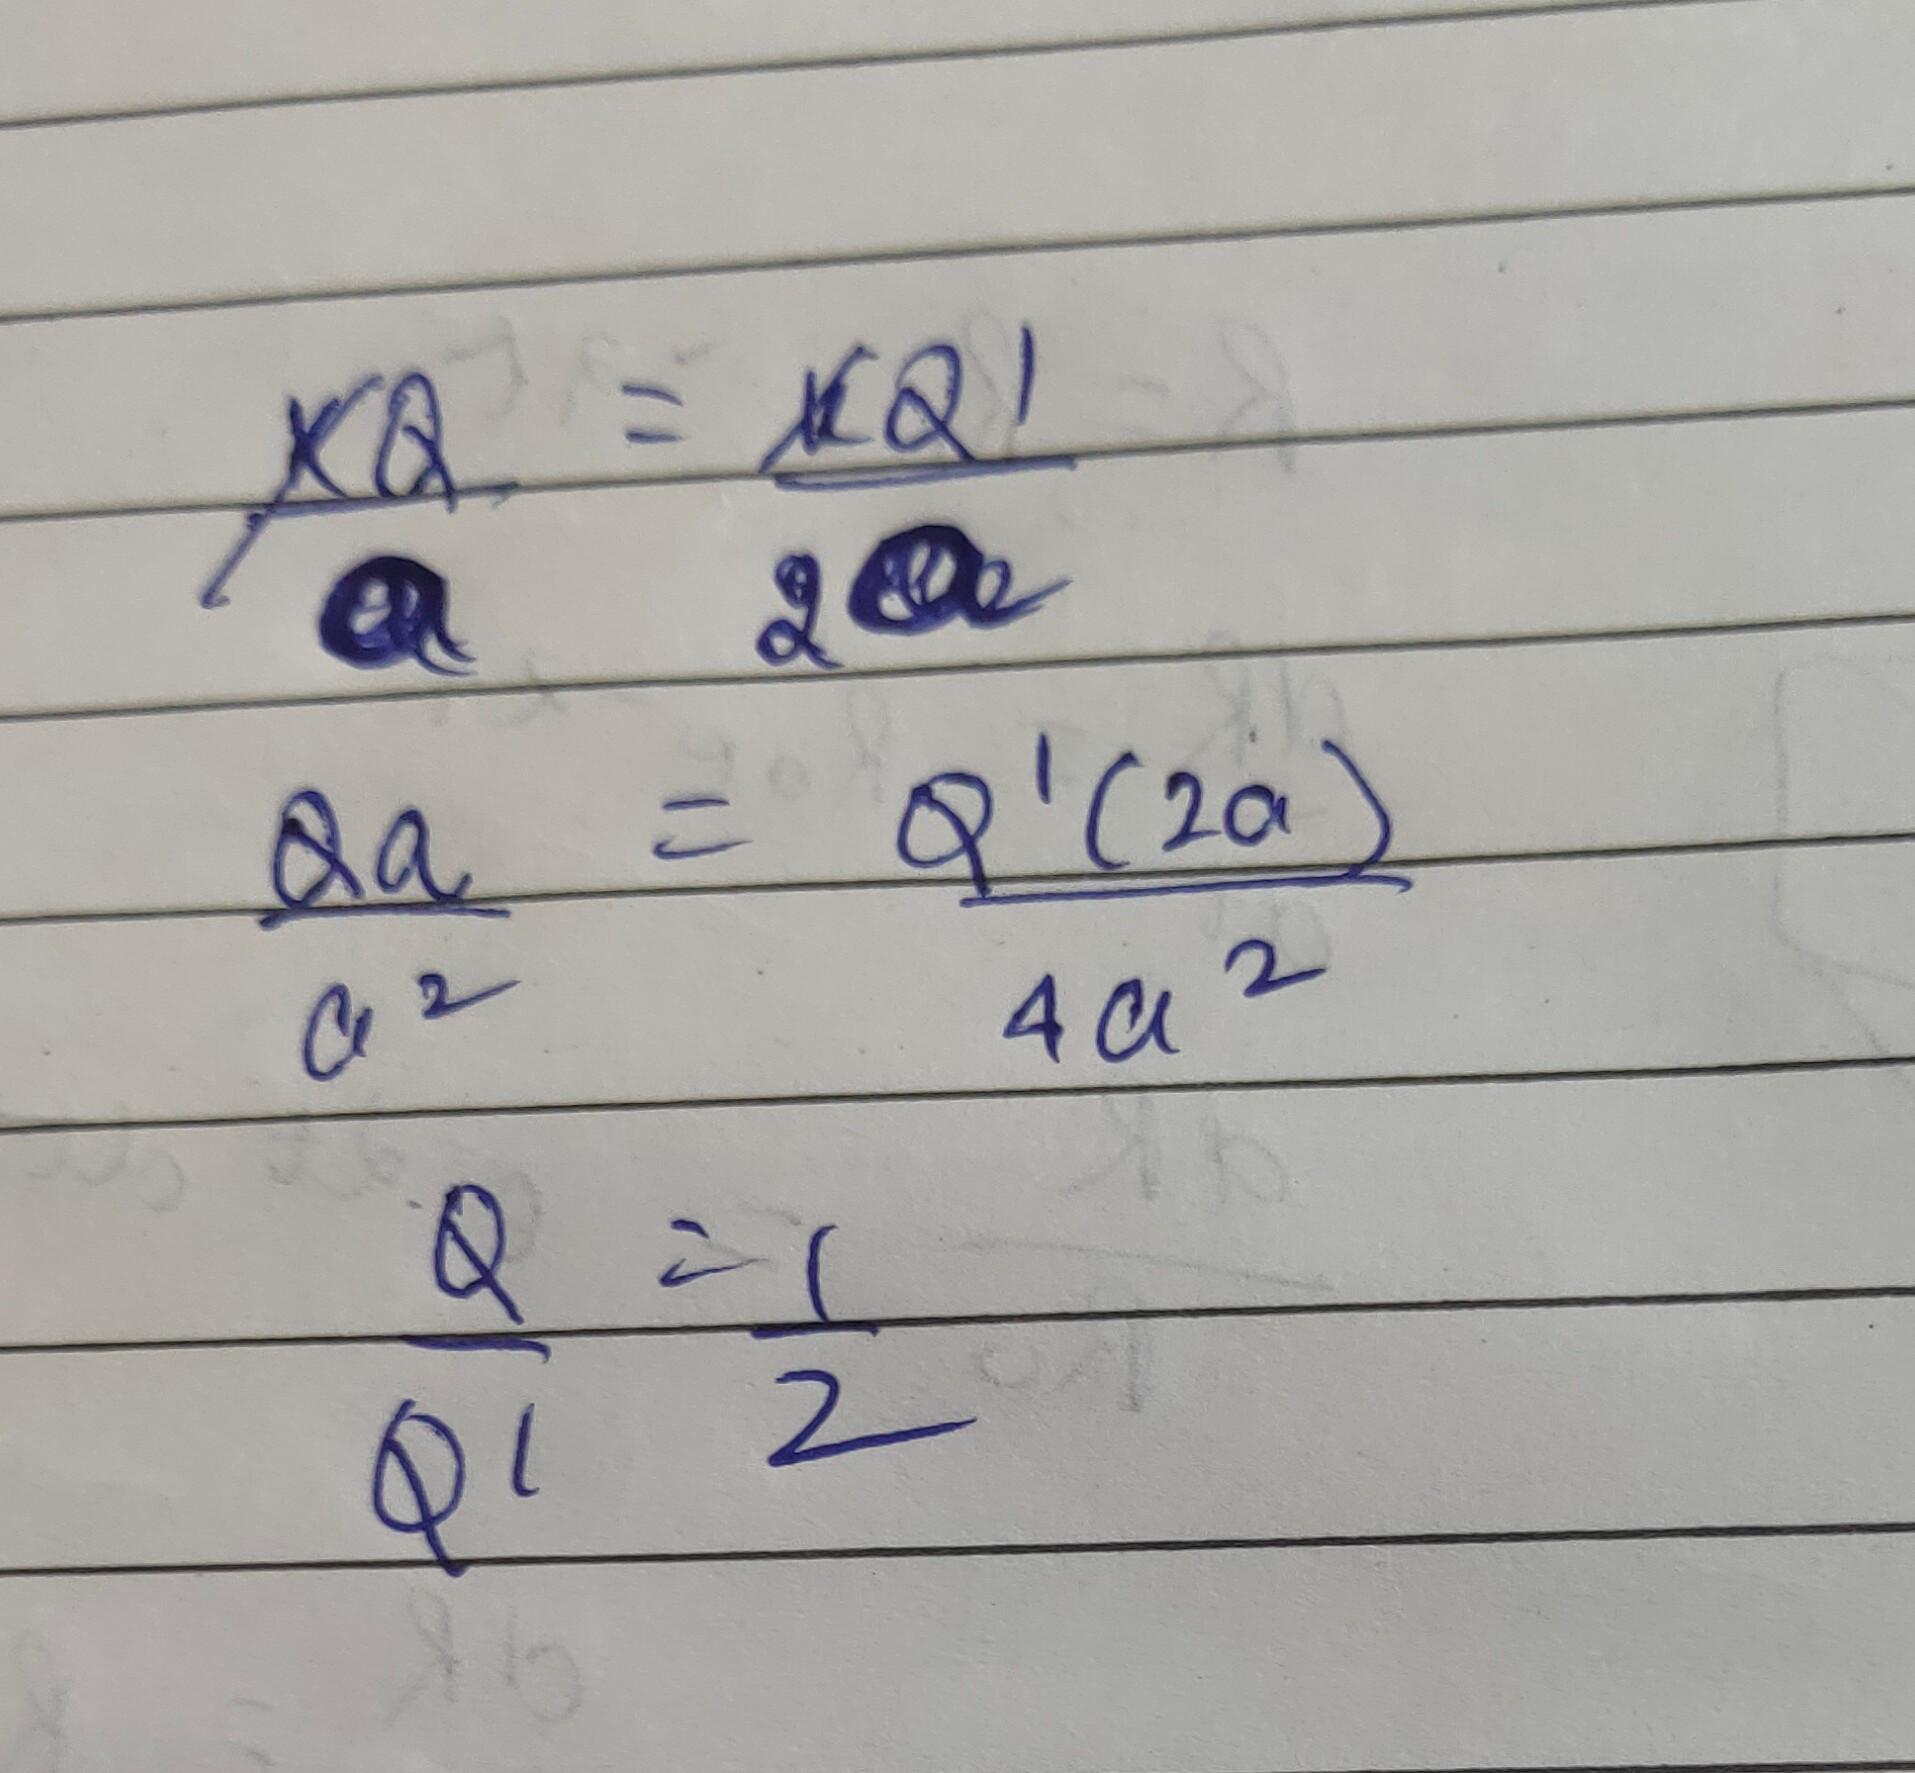 KQ/a = KQ'/2a
Qa/a² = Q'(2a)/4a²
Q/Q' = 1/2